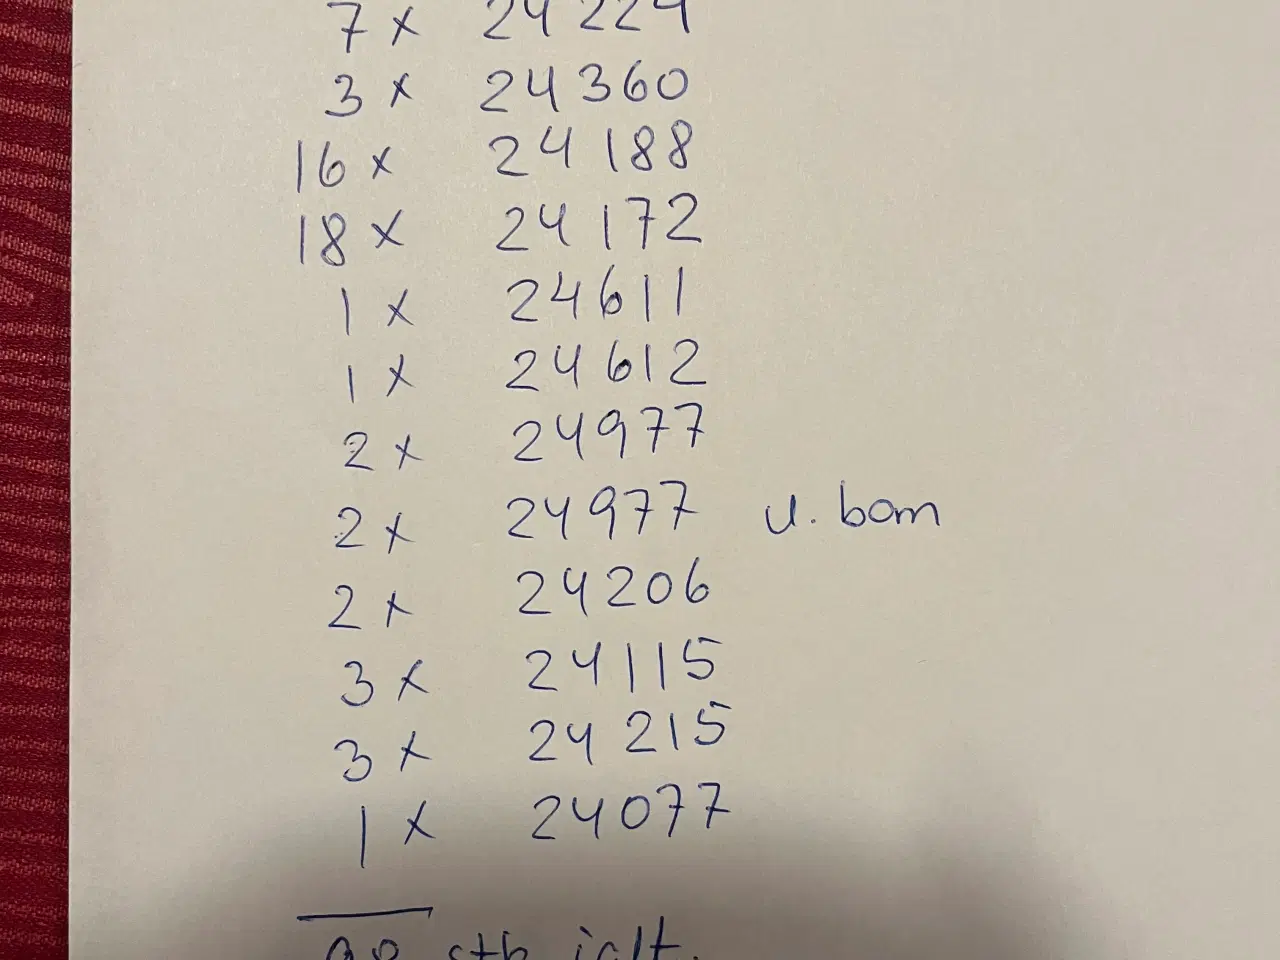 7 x 24224
3 x 24360
16 x 24188
18 x 24172
1 x 24611
1 x 24612
2 x 24977
2 x 24977 u. bom
2 x 24206
3 x 24115
3 x 24215
1 x 24077
stk ialt.